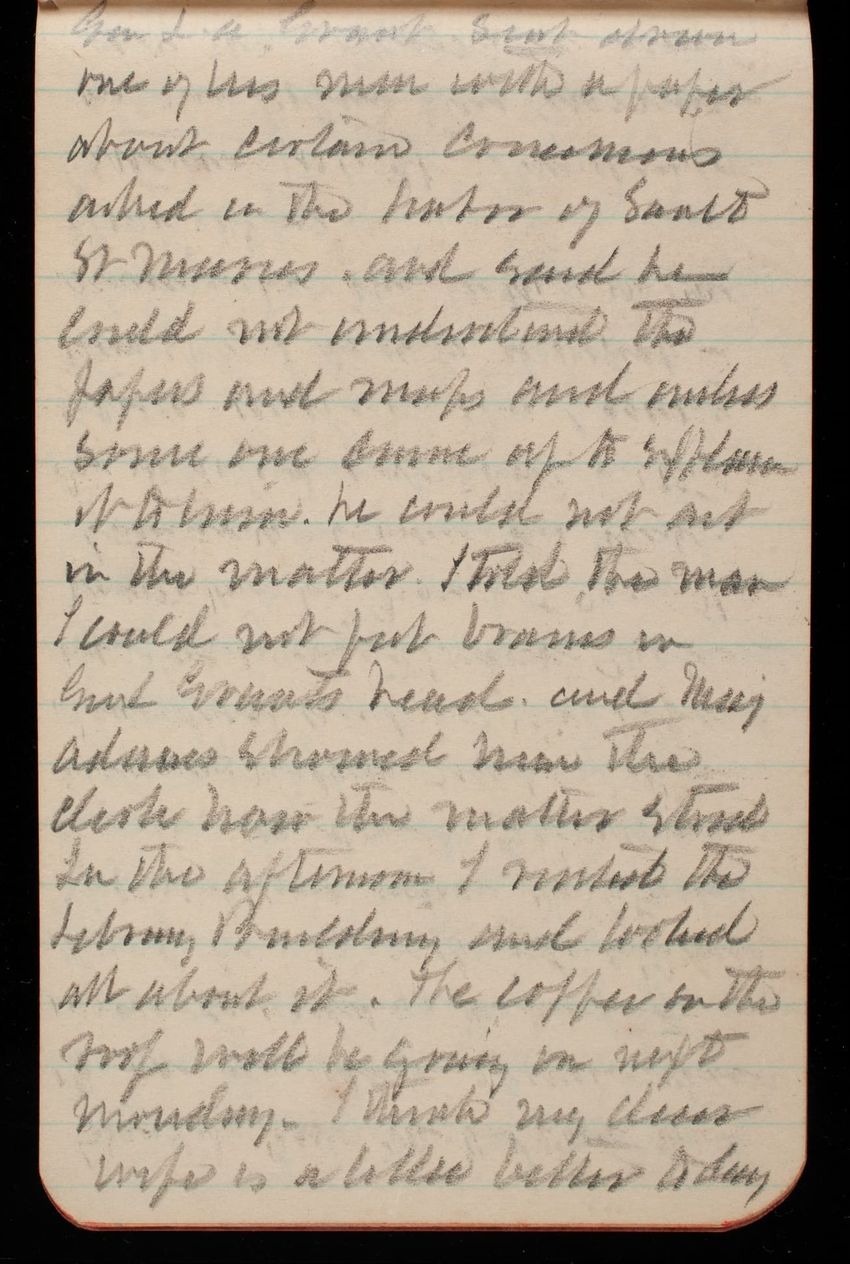 Gen L A Grant sent down
one of his men with a paper
about certain
asked in the harbor of Sault
St Maries. and said he
could not understand the
papers and maps and unless
some one came up to explain
it to him. he could not act
in the matter. I told the man
I could not put brains in
Genl Grants head. and Maj
Adams showed him the
clerk how the matter stood
In the afternoon I visited the
Library Building and looked
all about it. The copper on the
roof will be going on next
Monday. I think my dear
wife is a little better today